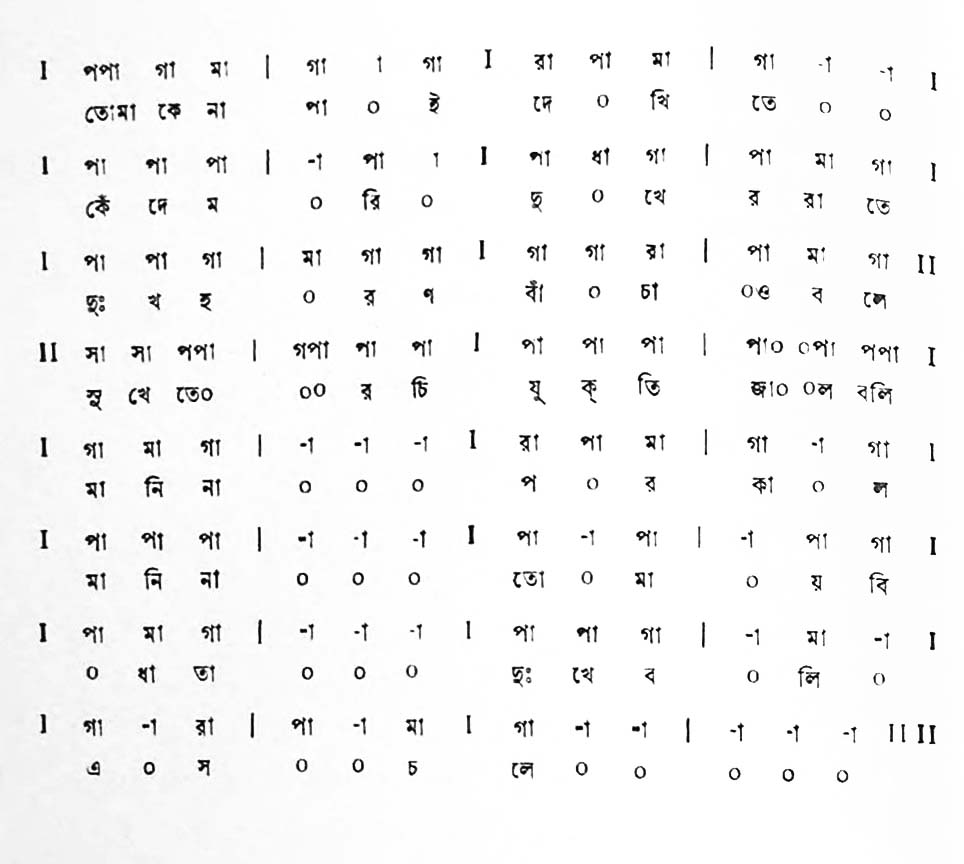 I পপা গা মা | গা া গা I রা পা মা | গা -া -া I
তোমা কে না পা ০ ই দে ০ খি তে ০ ০
I পা পা পা | -া পা া I পা ধা গা | পা মা গা I
কেঁ দে ম ০ রি ০ দু ০ খে র রা তে
I পা পা গা | মা গা গা I গা গা রা | পা মা গা II
দুঃ খ হ ০ র ণ বাঁ ০ চা ০ও ব লে
II সা সা পপা | গপা পা পা I পা পা পা | পা০ ০পা পপা I
সু খে তে০ ০০ র চি যু ক্ তি জা০ ০ল বলি
I গা মা গা | -া -া -া I রা পা মা | গা -া গা I
মা নি না ০ ০ ০ প ০ র কা ০ ল
I পা পা পা | -া -া -া I পা -া পা | -া পা গা I
মা নি না ০ ০ ০ তো ০ মা ০ য় বি
I পা মা গা | -া -া -া I পা পা গা | -া মা -া I
০ ধা তা ০ ০ ০ দুঃ খে ব ০ লি ০
I গা -া রা | পা -া মা I গা -া -া | -া -া -া II II
এ ০ স ০ ০ চ লে ০ ০ ০ ০ ০